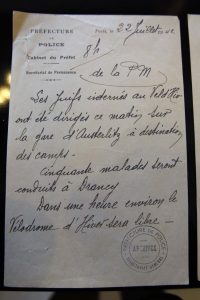 PRÉFECTURE
DE
POLICE
Cabinet du Préfet
Secrétariat de Permanence
Paris, le 22 Juillet 1942.
8h
de la PM
Les Juifs internés au Vel d'Hiv
ont été dirigés ce matin sur
la gare d'Austerlitz à destination
des camps.
Cinquante malades seront
conduits à Drancy
Dans une heure environ le
Vélodrome d'Hiver sera libre —
PRÉFECTURE DE POLICE
ARCHIVES